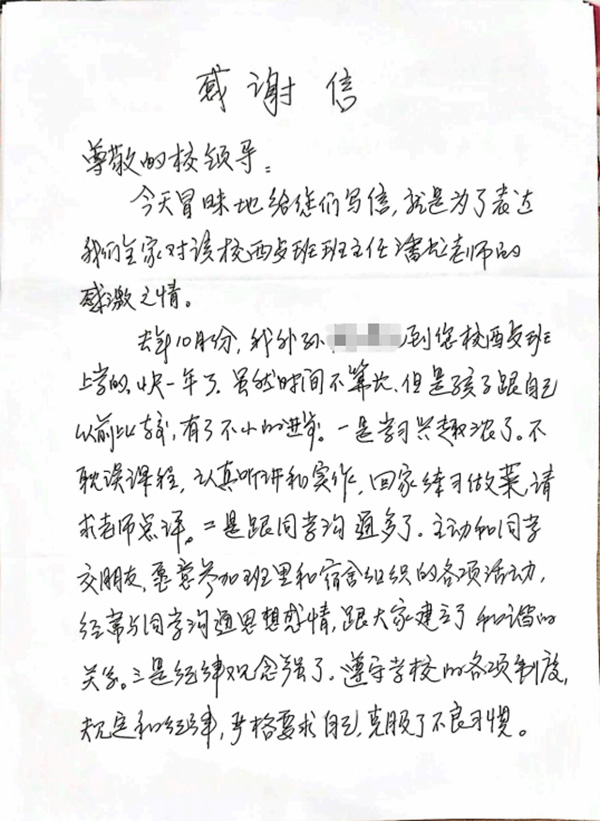 感谢信
尊敬的校领导：
今天冒昧地给您们写信，就是为了表达
我们全家对该校西点班班主任潘龙老师的
感激之情。
去年10月份，我外孙到您校西点班
上学的，快一年了。虽然时间不算长，但是孩子跟自己
以前比较，有了不小的进步。一是学习兴趣浓了。不
耽误课程，认真听讲和实作，回家练习做菜，请
求老师点评。二是跟同学沟通多了。主动和同学
交朋友，愿意参加班里和宿舍组织的各项活动，
经常与同学沟通思想感情，跟大家建立了和谐的
关系。三是纪律观念强了。遵守学校的各项制度，
规定和纪律，严格要求自己，克服了不良习惯。